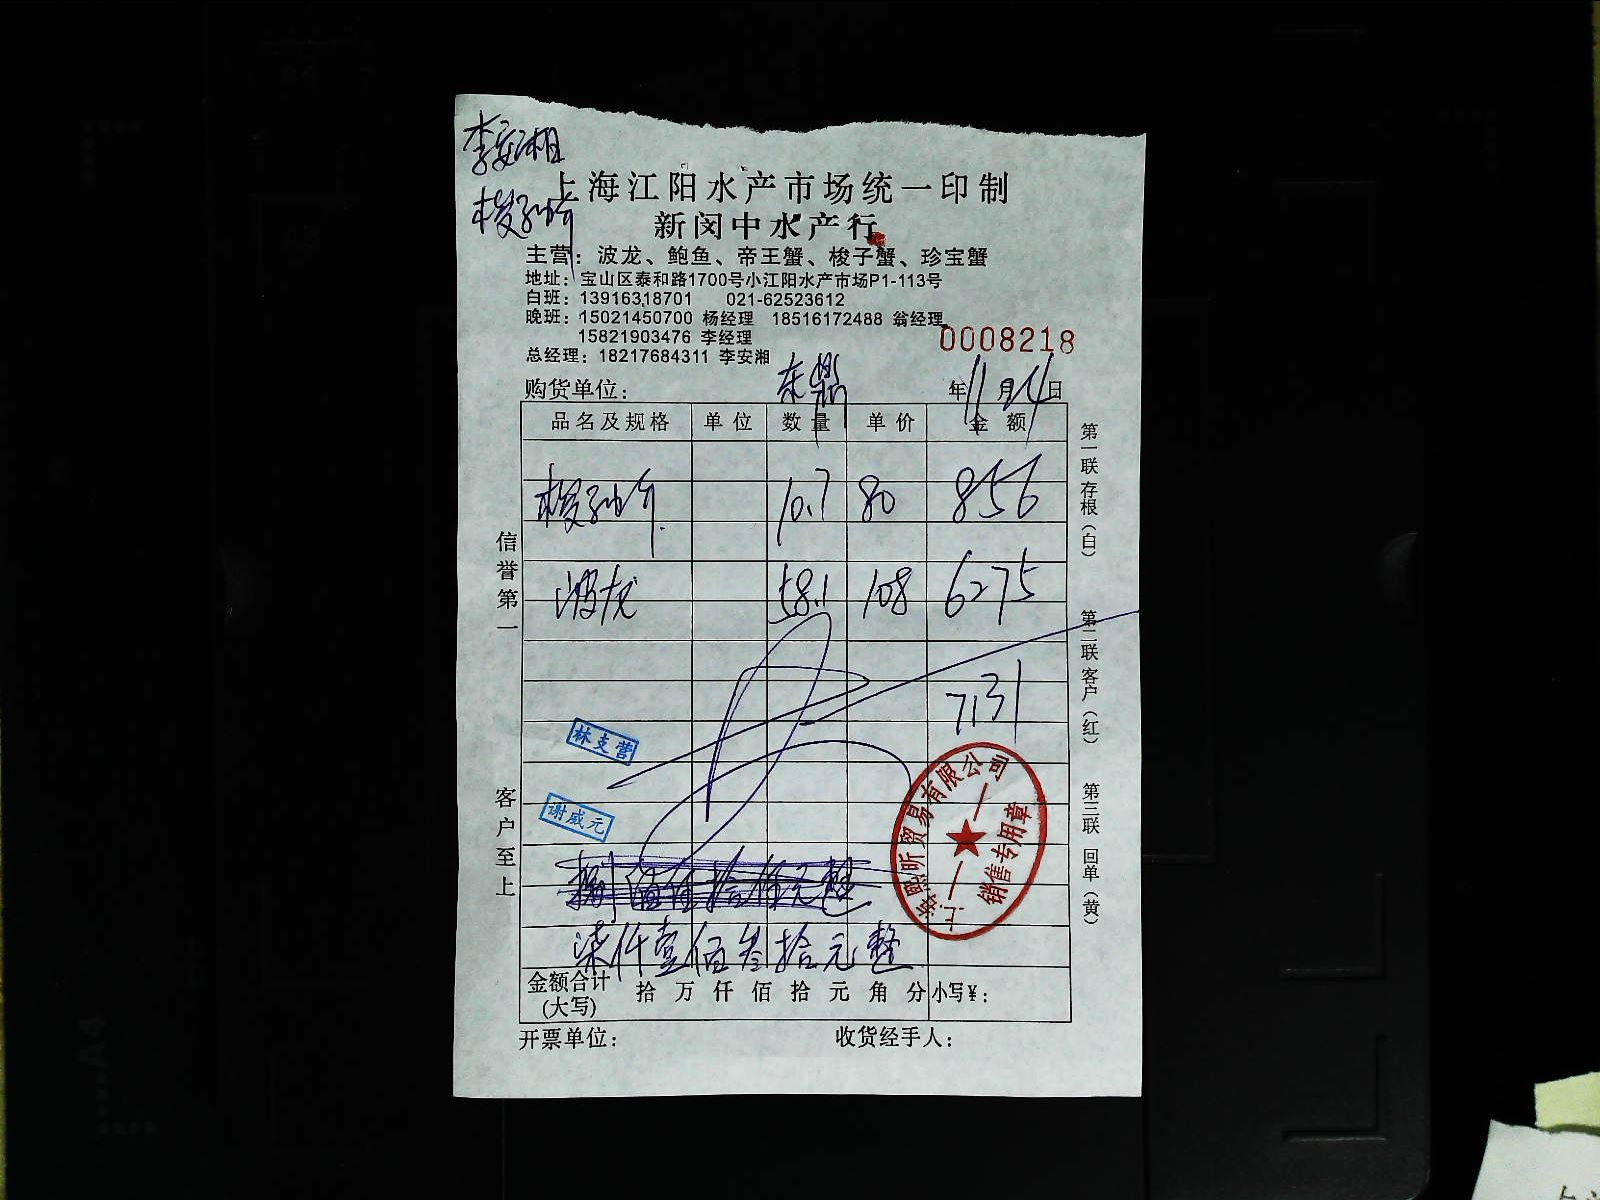 李安湘
梭子蟹
上海江阳水产市场统一印制
新闵中水产行
主营：波龙、鲍鱼、帝王蟹、梭子蟹、珍宝蟹
地址：宝山区泰和路1700号小江阳水产市场P1-113号
白班：13916318701 021-62523612
晚班：15021450700 杨经理 18516172488 翁经理
15821903476 李经理
0008218
总经理：18217684311 李安湘
购货单位： 东鼎 年11月24日
品名及规格 单位 数量 单价 金额
梭子蟹 10.7 80 856
波龙 58.1 108 6275
7131
林支营
谢威元
贸易有限公司
销售专用章
柒仟壹佰叁拾元整
金额合计(大写) 拾 万 仟 佰 拾 元 角 分 小写￥：
开票单位： 收货经手人：
信誉第一
客户至上
第一联 存根（白）
第二联 客户（红）
第三联 回单（黄）
A4